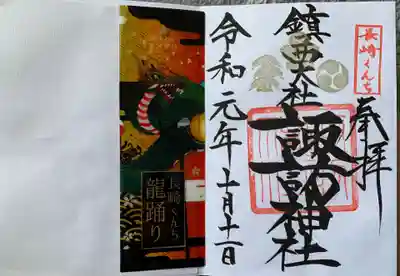 長崎くんち
奉拝
鎮西大社
諏訪神社
令和元年十月十一日
長崎くんち
龍踊り